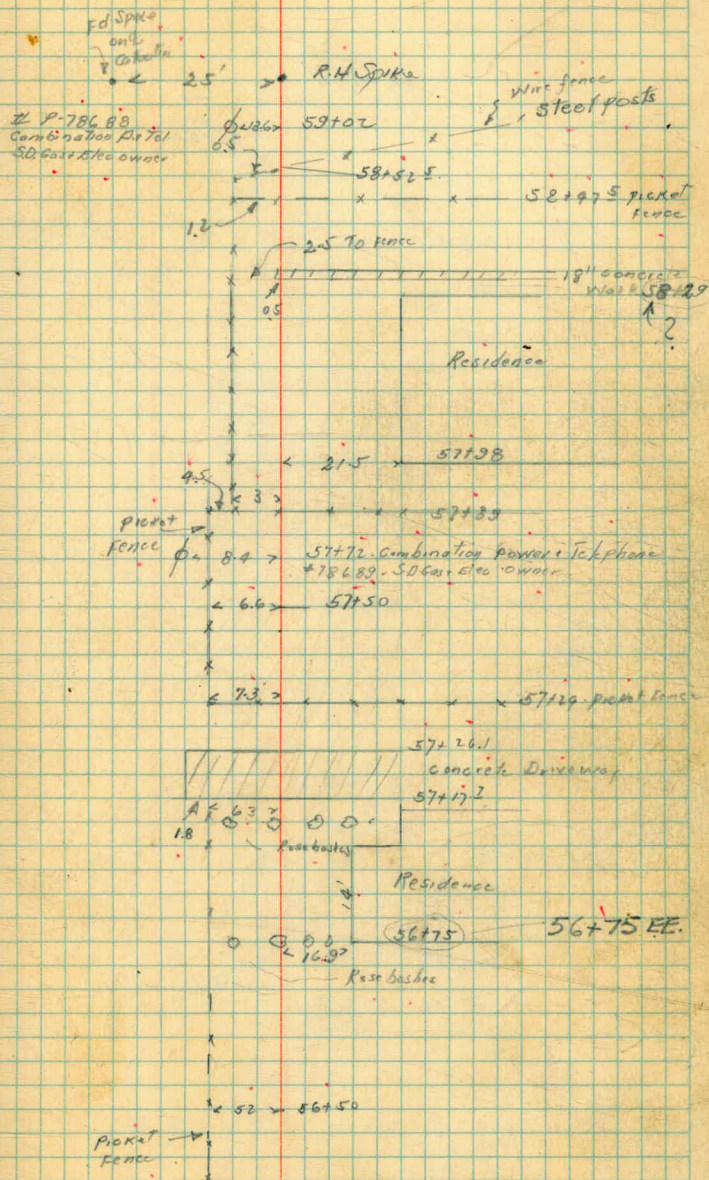 Fd Spike
on
25' R.H Spike
Wire fence
steel posts
# P-78688
Combination Pr Tel
S.D. Gas & Elec owner
59+02
0.5
58+52 5
58+47 5 picket
fence
1.2
2.5 To fence
18" concrete
Walk 58+29
0.5
?
Residence
21.5 57+98
4.5
3 57+89
picket
Fence
8.4 57+72 Combination Power & Telephone
#78689 - S.D Gas & Elec owner
6.6 57+50
7.3 57+29 picket fence
57+26.1
concrete Driveway
57+17.1
6.3
1.8
Rose bushes
Residence
14'
56+75 56+75 EE.
16.9
Rose bushes
5.2 56+50
Picket
Fence